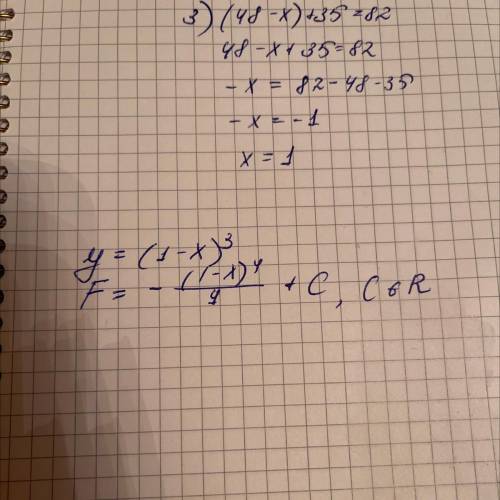 3) (48 - x) + 35 = 82
48 - x + 35 = 82
- x = 82 - 48 - 35
- x = - 1
x = 1
y = (1 - x)^3
F = - (1 - x)^4 / 4 + C, C ∈ R